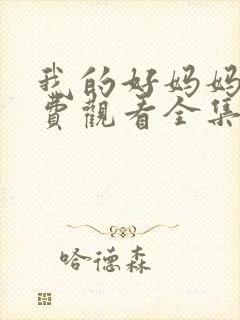 我的好妈妈
費觀看全集
哈德森